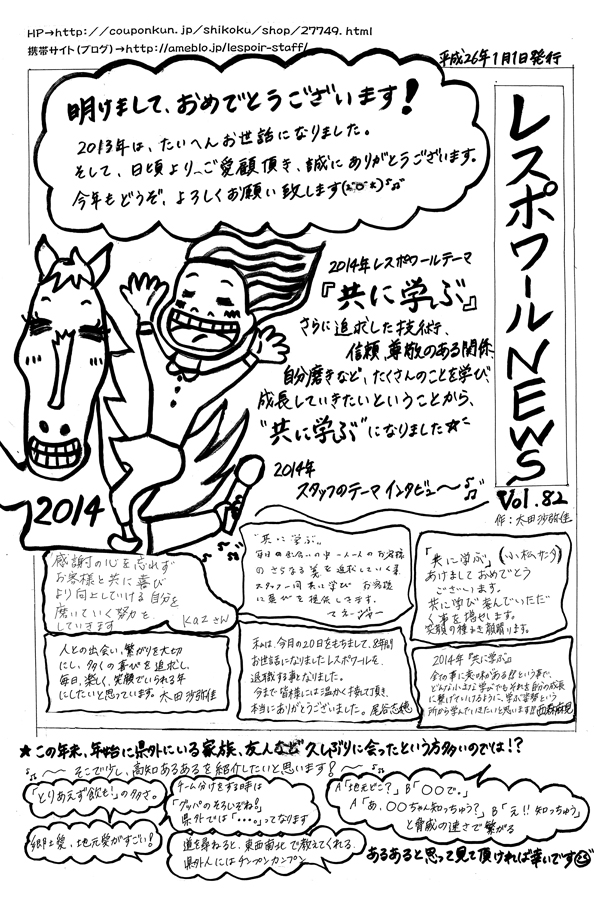 HP→http://couponkun.jp/shikoku/shop/27749.html
携帯サイト(ブログ)→http://ameblo.jp/lespoir-staff/
平成26年1月1日発行
レスポワールNEWS
Vol.82
作:太田沙弥佳
明けまして、おめでとうございます!
2013年は、たいへんお世話になりました。
そして、日頃より、ご愛顧頂き、誠にありがとうございます。
今年もどうぞ、よろしくお願い致します
2014年レスポワールテーマ
『共に学ぶ』
さらに追求した技術、
信頼、尊敬のある関係、
自分磨きなど、たくさんのことを学び、
成長していきたいということから、
“共に学ぶ”になりました☆
2014年
スタッフのテーマインタビュー〜
2014
感謝の心を忘れず
お客様と共に喜び
より向上していける自分を
磨いていく努力を
していきます
Kazさん
“共に学ぶ”
毎日の出会いの中一人一人のお客様
のさらなる美を追求していく事
スタッフ一同共に学び お客様
に喜びを提供してます。
マネージャー
「共に学ぶ」
あけましておめでとう
ございます。
共に学び喜んでいただ
く事を増せます。
笑顔の種まき頑張ります。
人との出会い、繋がりを大切
にし、多くの喜びを追求し、
毎日、楽しく、笑顔でいられる年
にしたいと思っています。太田沙弥佳
私は、今月の20日をもちまして、8年間
お世話になりましたレスポワールを、
退職する事となりました。
今まで皆様には温かく接して頂き、
本当にありがとうございました。尾谷志穂
2014年『共に学ぶ』
全ての事に意味がある!!という事で、
どんな小さな学びでもそれを自分の成長
に繋げていけるように、学ぶ姿勢という
所から学んでいきたいと思います!!
★この年末、年始に県外にいる家族、友人など久しぶりに会ったという方多いのでは!?
〜そこで少し、高知あるあるを紹介したいと思います!〜
「とりあえず飲も!」の多さ。
チーム分けをする時は
「グッパのそろいぞね!」
県外では「・・・。」ってなります
A「地元どこ?」B「〇〇で。」
A「あ、〇〇ちゃん知っちゅう?」B「え!!知っちゅう」
と脅威の速さで繋がる
郷土愛、地元愛がすごい!
道を尋ねると、東西南北で教えてくれる。
県外人にはチンプンカンプン
あるあると思って見て頂ければ幸いです